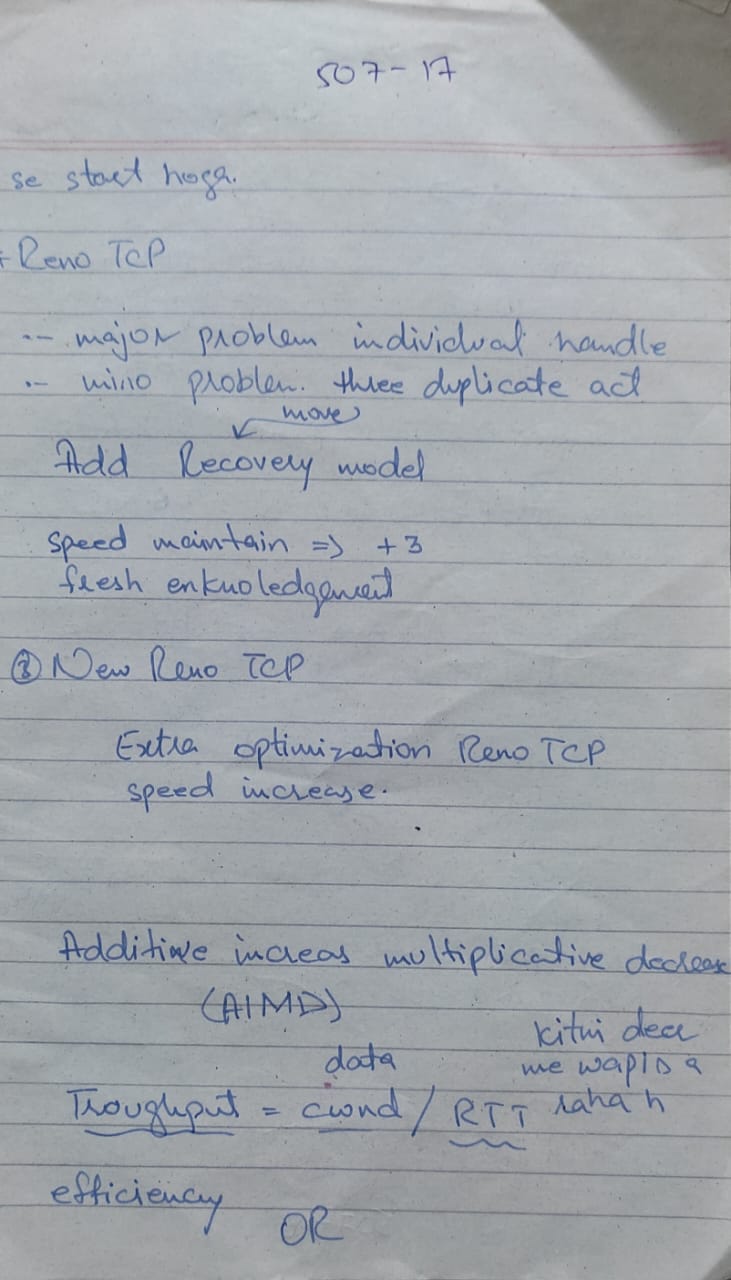 507-17
se start hoga.
Reno TCP
-- major problem individual handle
-- mino problem. three duplicate act
move
Add Recovery model
speed maintain => +3
fresh enknoledgement
③ New Reno TCP
Extra optimization Reno TCP
speed increase.
Additive increas multiplicative decrease
(AIMD)
kitni deer
data me wapis a
Troughput = cwnd / RTT raha h
efficiency
OR